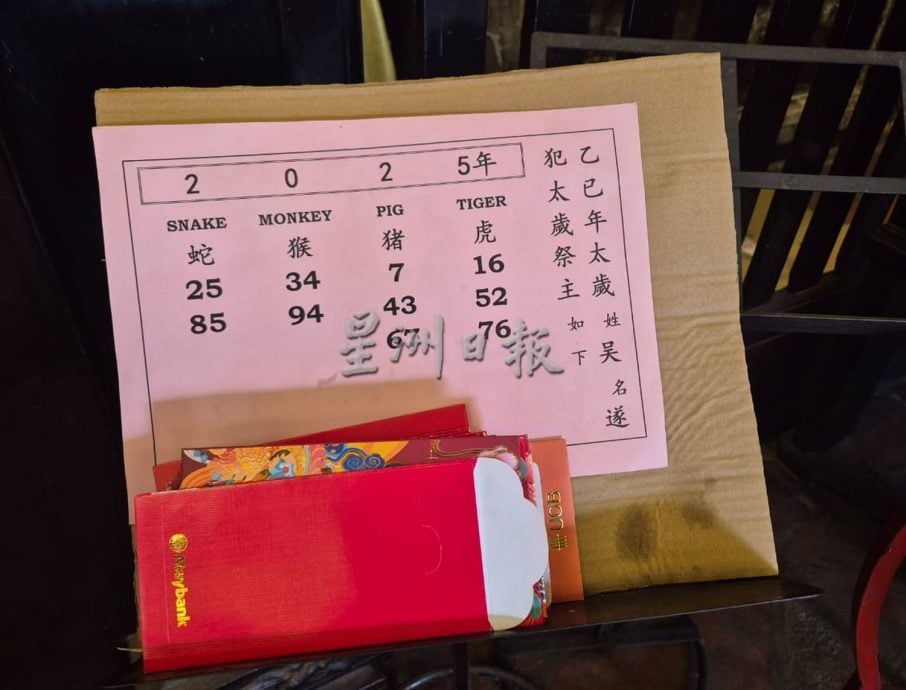 2 0 2 5年
SNAKE MONKEY PIG TIGER
蛇 猴 猪 虎
25 34 7 16
85 94 43 52
67 76
乙已年太歲姓吴名遂
犯太歲祭主如下
星洲日报
Maybank
UOB